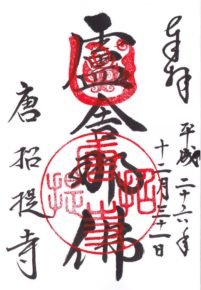 奉拝
平成二十六年
十二月三十一日
盧舎那佛
唐招提寺